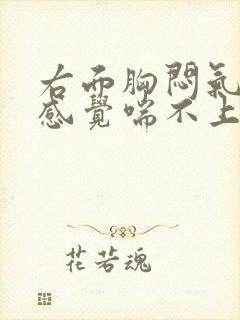 右而胸悶氣
感覺喘不上
花若魂